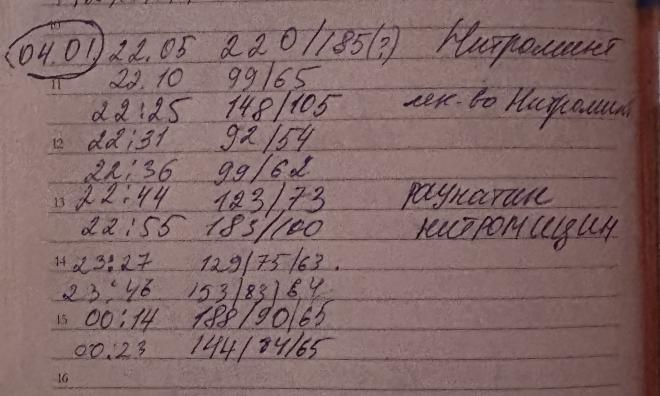 10
04.01. 22.05 220/185(?) Нитроминт
11 22.10 99/65
22:25 148/105 лек-во Нитроминт
12 22:31 92/54
22:36 99/62
13 22:44 123/73 раунатин
22:55 183/100 нитромицин
14 23:27 129/75/63.
23:46 153/83/64
15 00:14 188/90/65
00:23 144/84/65
16